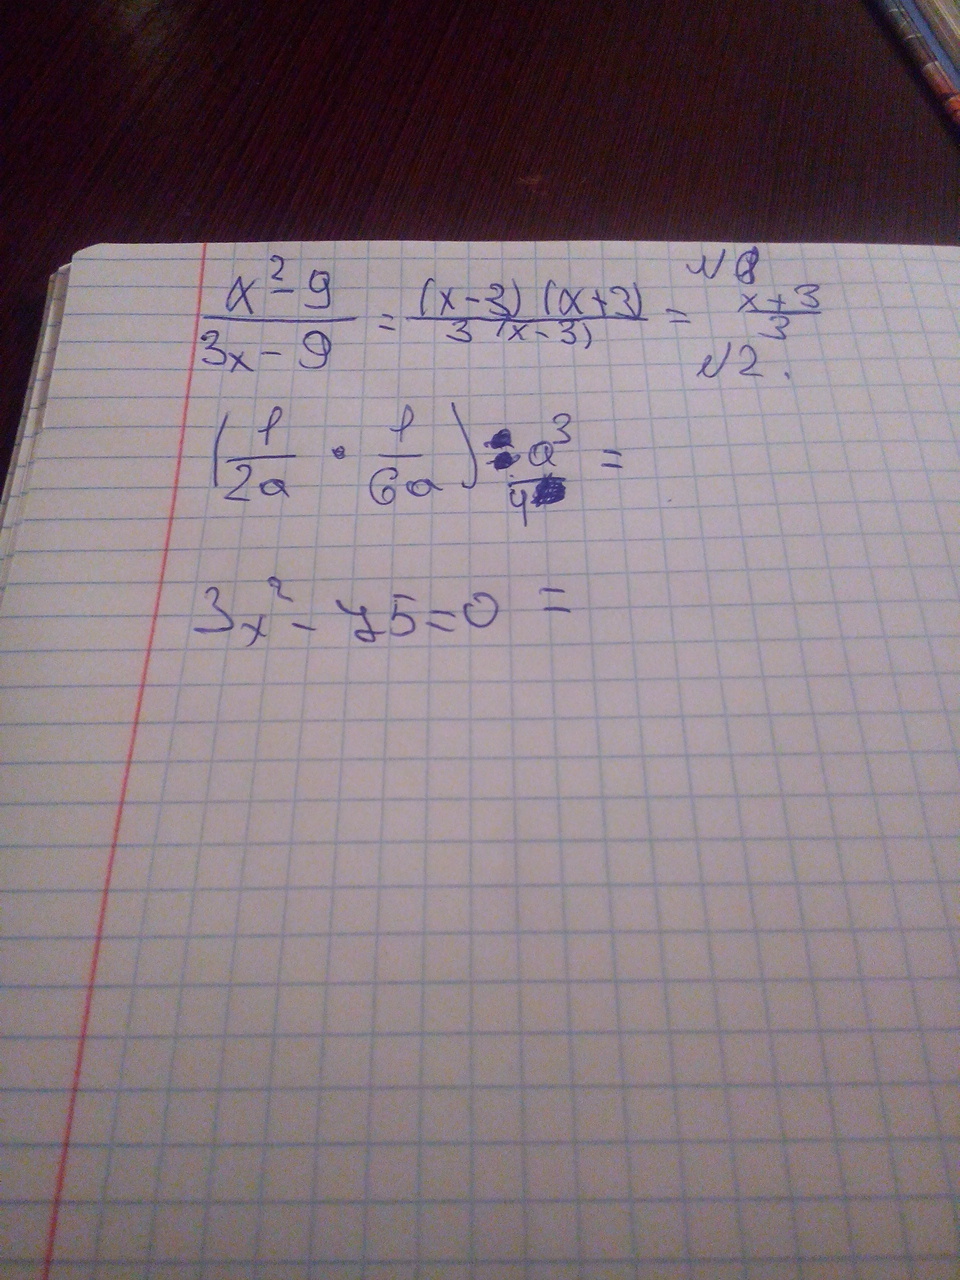 № 1
x² - 9 / 3x - 9 = (x-3) (x+3) / 3 (x-3) = x+3 / 3
№ 2.
(1/2a · 1/6a) : a³/4 =
3x² - 75 = 0 =